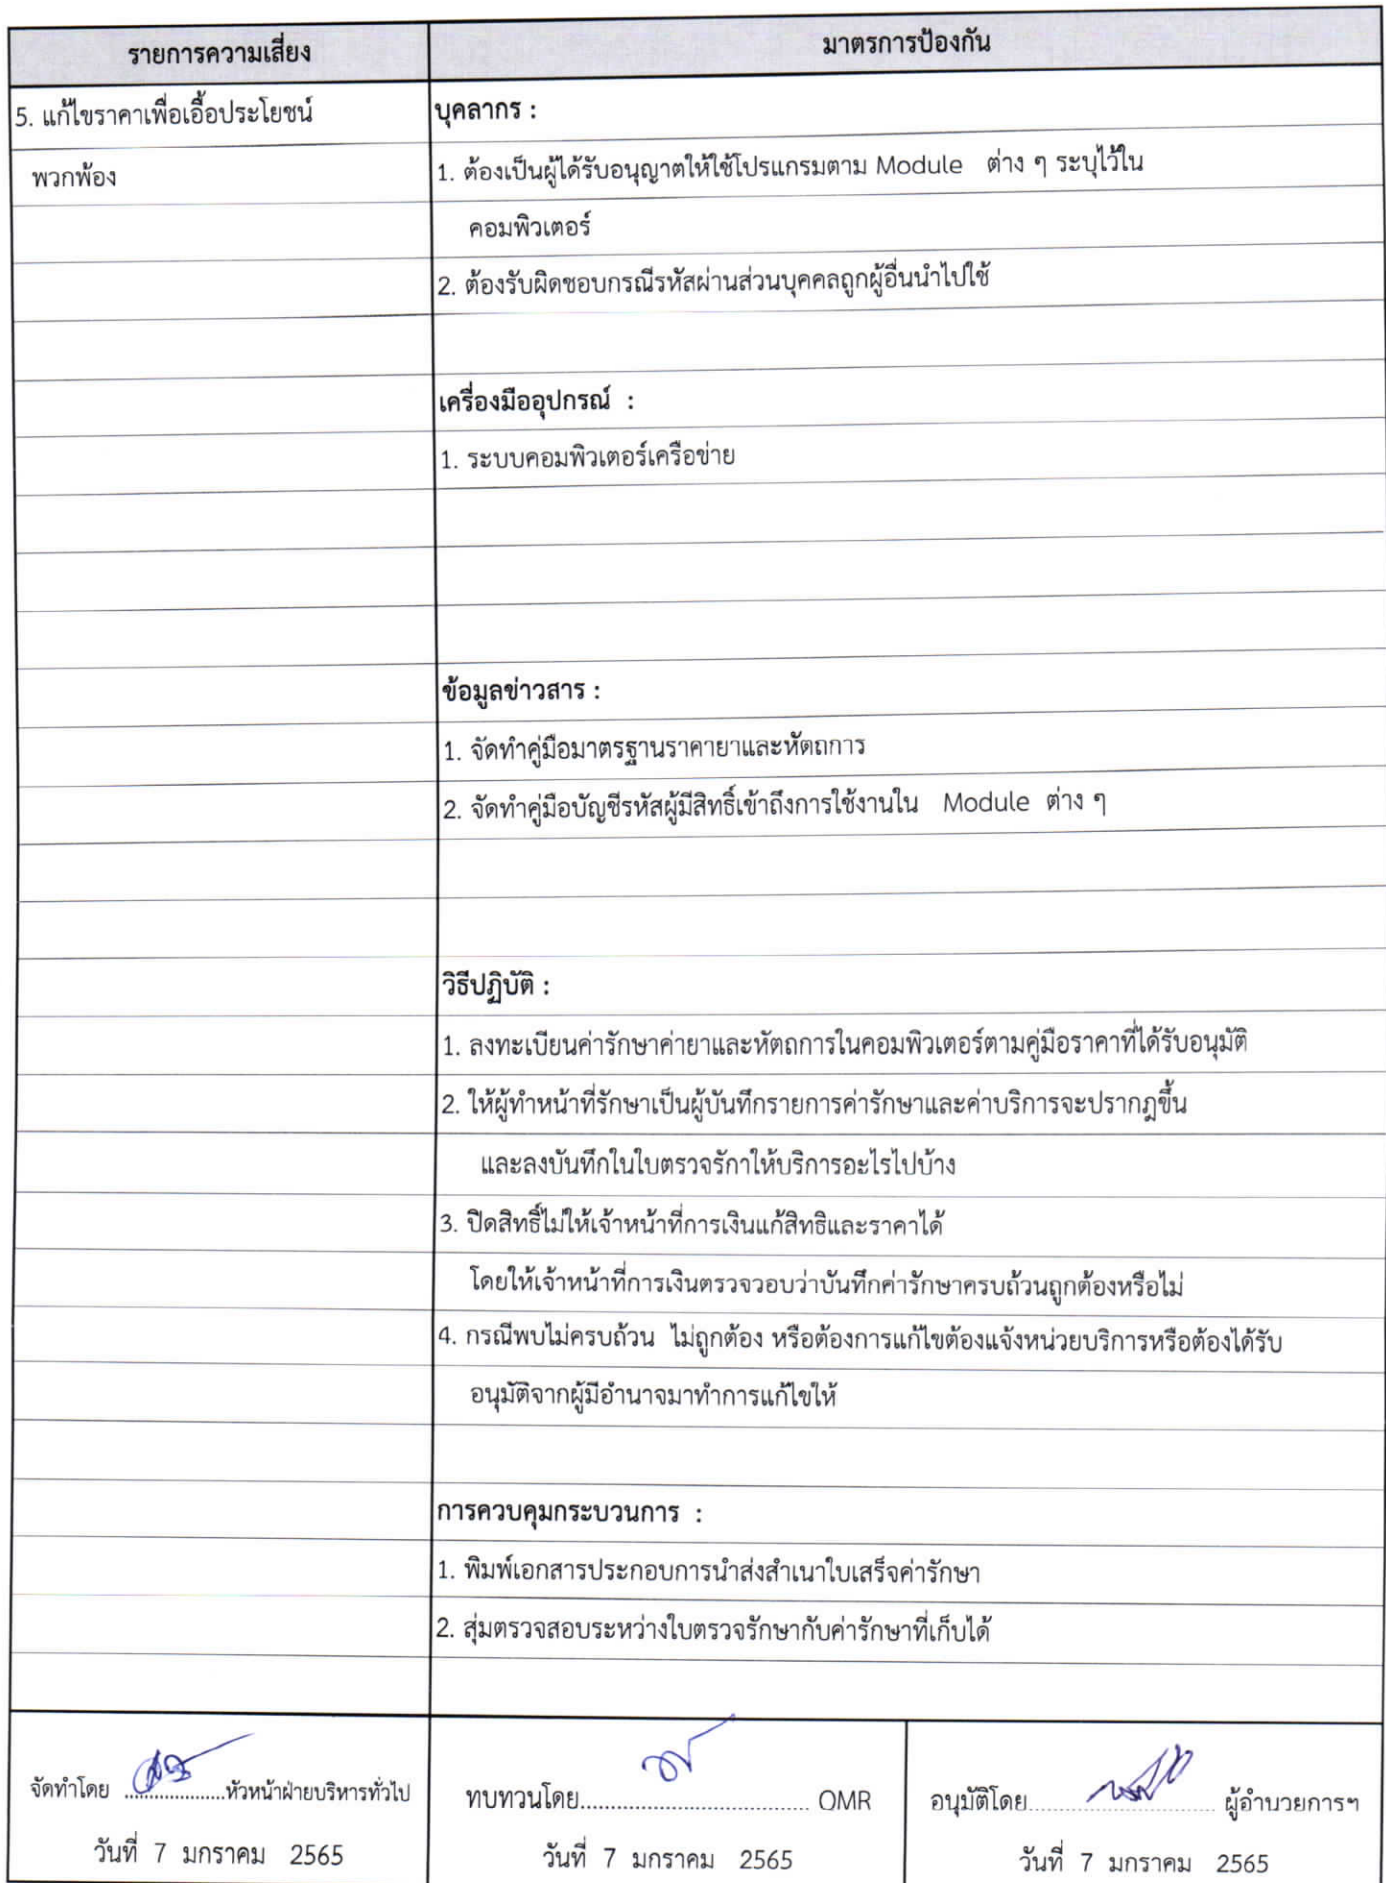 รายการความเสี่ยง
มาตรการป้องกัน
5. แก้ไขราคาเพื่อเอื้อประโยชน์
พวกพ้อง
บุคลากร :
1. ต้องเป็นผู้ได้รับอนุญาตให้ใช้โปรแกรมตาม Module ต่าง ๆ ระบุไว้ใน
คอมพิวเตอร์
2. ต้องรับผิดชอบกรณีรหัสผ่านส่วนบุคคลถูกผู้อื่นนำไปใช้
เครื่องมืออุปกรณ์ :
1. ระบบคอมพิวเตอร์เครือข่าย
ข้อมูลข่าวสาร :
1. จัดทำคู่มือมาตรฐานราคายาและหัตถการ
2. จัดทำคู่มือบัญชีรหัสผู้มีสิทธิ์เข้าถึงการใช้งานใน Module ต่าง ๆ
วิธีปฏิบัติ :
1. ลงทะเบียนค่ารักษาค่ายาและหัตถการในคอมพิวเตอร์ตามคู่มือราคาที่ได้รับอนุมัติ
2. ให้ผู้ทำหน้าที่รักษาเป็นผู้บันทึกรายการค่ารักษาและค่าบริการจะปรากฎขึ้น
และลงบันทึกในใบตรวจรักาให้บริการอะไรไปบ้าง
3. ปิดสิทธิ์ไม่ให้เจ้าหน้าที่การเงินแก้สิทธิและราคาได้
โดยให้เจ้าหน้าที่การเงินตรวจวอบว่าบันทึกค่ารักษาครบถ้วนถูกต้องหรือไม่
4. กรณีพบไม่ครบถ้วน ไม่ถูกต้อง หรือต้องการแก้ไขต้องแจ้งหน่วยบริการหรือต้องได้รับ
อนุมัติจากผู้มีอำนาจมาทำการแก้ไขให้
การควบคุมกระบวนการ :
1. พิมพ์เอกสารประกอบการนำส่งสำเนาใบเสร็จค่ารักษา
2. สุ่มตรวจสอบระหว่างใบตรวจรักษากับค่ารักษาที่เก็บได้
จัดทำโดย ....................หัวหน้าฝ่ายบริหารทั่วไป
วันที่ 7 มกราคม 2565
ทบทวนโดย.................................. OMR
วันที่ 7 มกราคม 2565
อนุมัติโดย.............................. ผู้อำนวยการฯ
วันที่ 7 มกราคม 2565